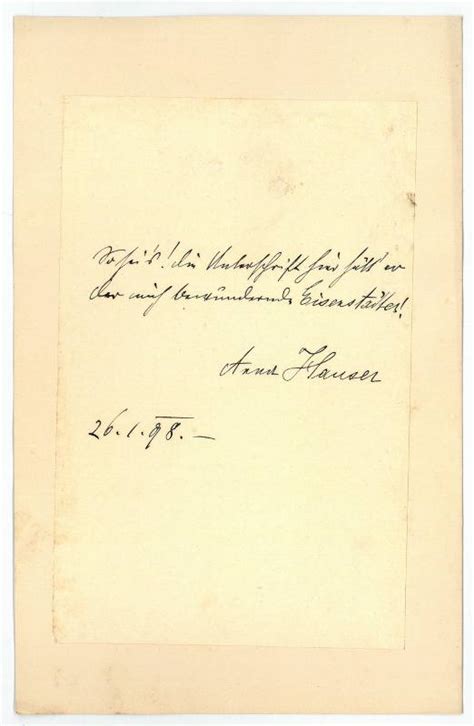 So sei's! die Unterschrift hier hätt' er
der mich bewundernde Eisenstädter!
Anna Hauser
26. 1. 98. –